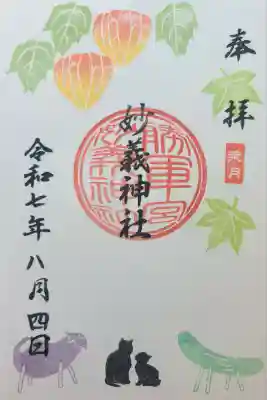 奉拝
葉月
妙義神社
令和七年八月四日